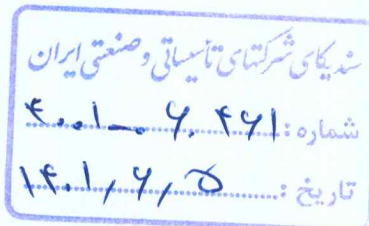 سندیکای شرکتهای تأسیساتی و صنعتی ایران
شماره: ۴۰۰۱-۰۶.۴۶۱
تاریخ: ۱۴۰۱/۶/۵